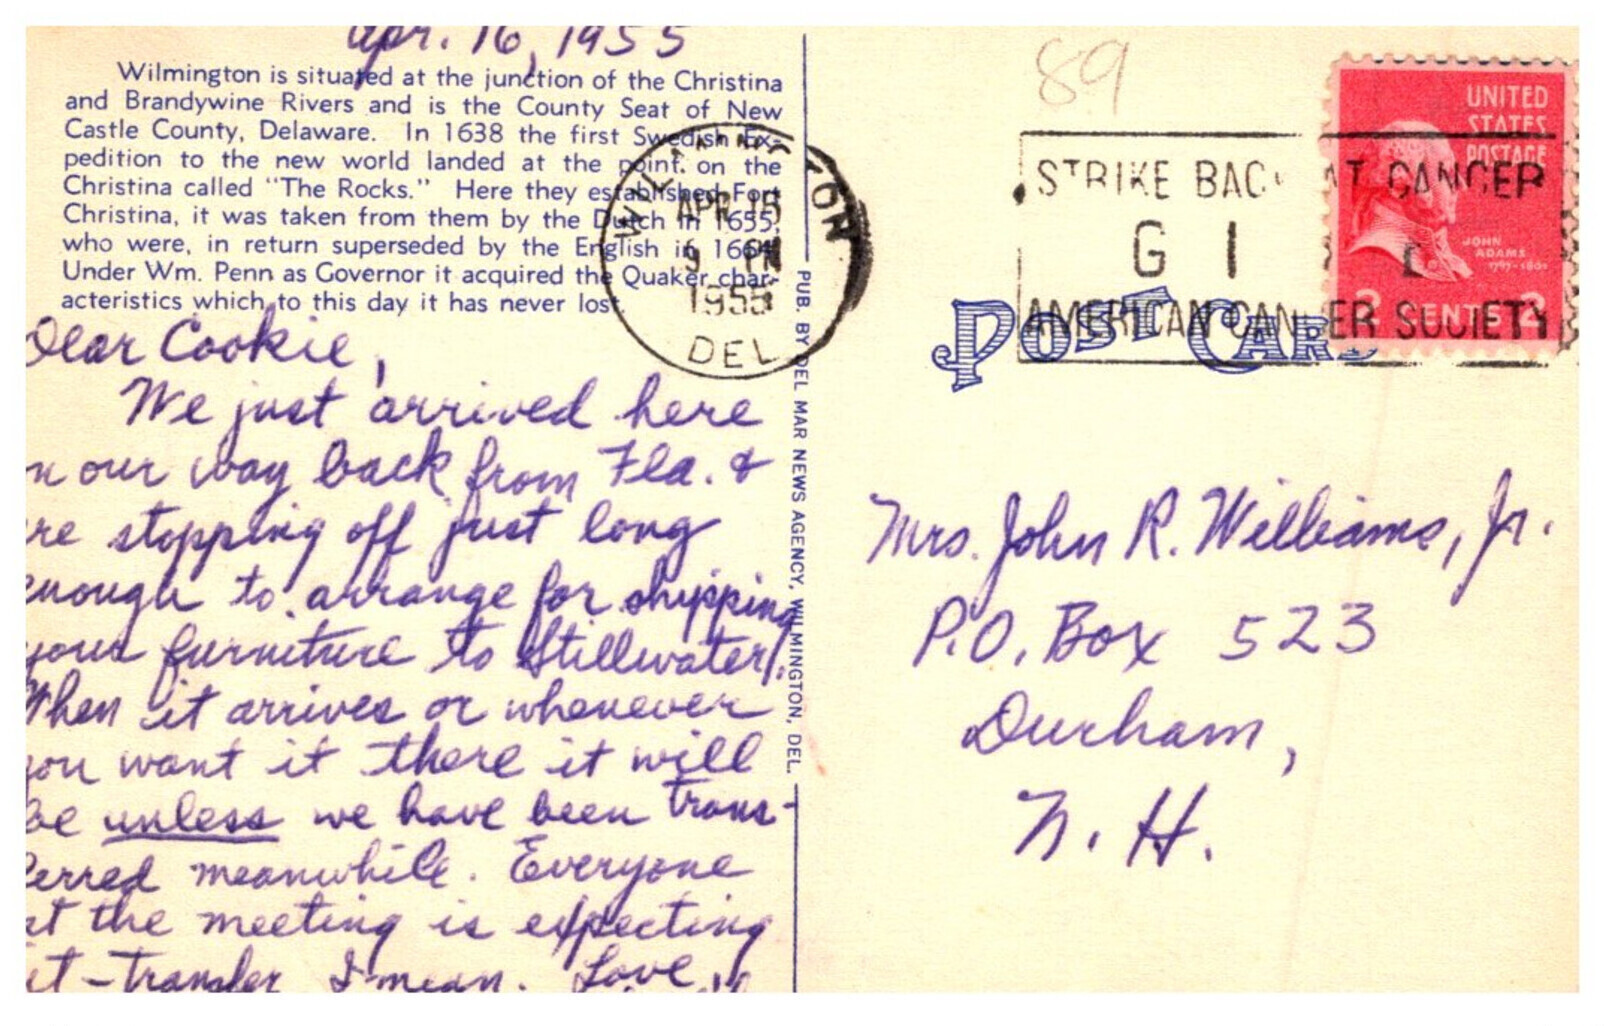 Apr. 16, 1955
Wilmington is situated at the junction of the Christina
and Brandywine Rivers and is the County Seat of New
Castle County, Delaware. In 1638 the first Swedish Ex-
pedition to the new world landed at the point on the
Christina called "The Rocks." Here they established Fort
Christina, it was taken from them by the Dutch in 1655,
who were, in return superseded by the English in 1664.
Under Wm. Penn as Governor it acquired the Quaker char-
acteristics which to this day it has never lost.
Dear Cookie,
We just arrived here
n our way back from Fla. &
re stopping off just long
enough to arrange for shipping
your furniture to Stillwater.
When it arrives or whenever
you want it there it will
be unless we have been trans-
ferred meanwhile. Everyone
at the meeting is expecting
it - transfer I mean. Love,
PUB. BY DEL MAR NEWS AGENCY, WILMINGTON, DEL.
APR 15
9 PM
1955
DEL
89
STRIKE BAC AT CANCER
G I
AMERICAN CANCER SOCIETY
UNITED
STATES
POSTAGE
JOHN
ADAMS
1797-1801
2 CENTS 2
POST CARD
Mrs. John R. Williams, Jr.
P.O. Box 523
Durham,
N. H.